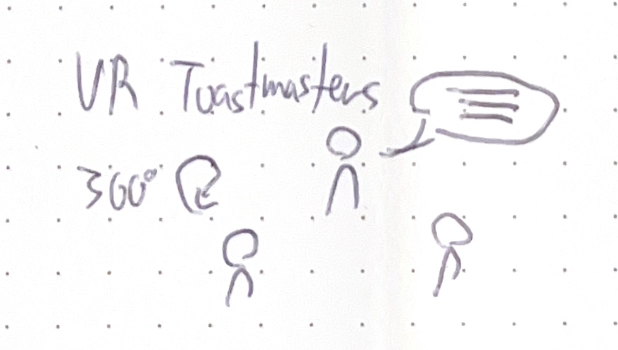 VR Toastmasters
360°